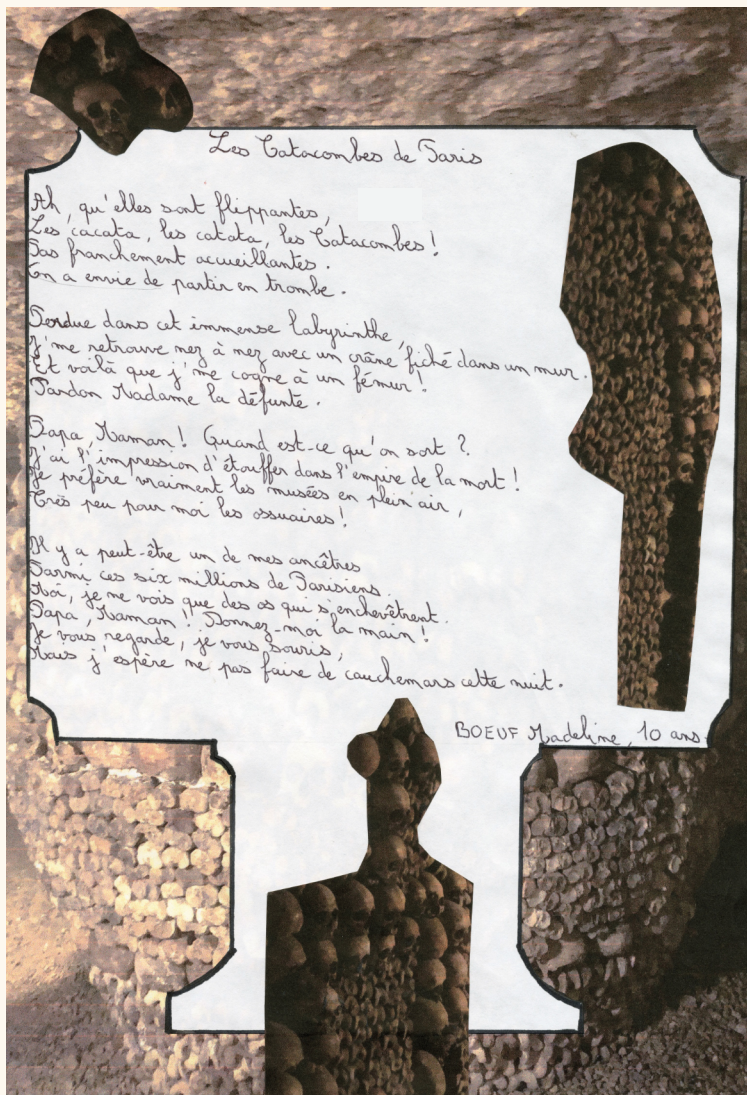 Les Catacombes de Paris
Ah, qu'elles sont flippantes,
Les cacata, les catata, les Catacombes !
Pas franchement accueillantes.
On a envie de partir en trombe.
Perdue dans cet immense labyrinthe,
J'me retrouve nez à nez avec un crâne fiché dans un mur.
Et voilà que j'me cogne à un fémur !
Pardon Madame la défunte.
Papa, Maman ! Quand est-ce qu'on sort ?
J'ai l'impression d'étouffer dans l'empire de la mort !
Je préfère vraiment les musées en plein air,
Très peu pour moi les ossuaires !
Il y a peut-être un de mes ancêtres
Parmi ces six millions de Parisiens.
Moi, je ne vois que des os qui s'enchevêtrent.
Papa, Maman ! Donnez-moi la main !
Je vous regarde, je vous souris,
Mais j'espère ne pas faire de cauchemars cette nuit.
BOEUF Madeline, 10 ans.